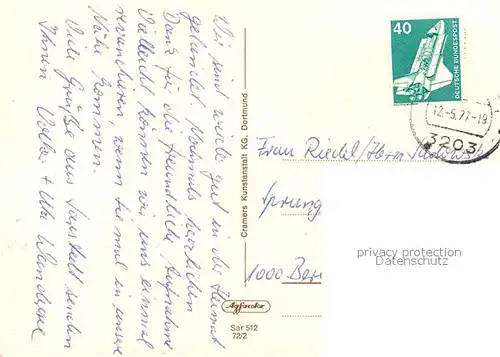 Wir sind wieder gut in der Heimat
gelandet. Nochmals herzlichen
Dank für die freundliche Aufnahme.
Vielleicht können wir uns einmal
revanchieren, wenn Sie mal in unsere
Nähe kommen.
Viele Grüße aus Sarstedt senden
Ihnen Volker + Ute
Cramers Kunstanstalt KG. Dortmund
Agfacolor
Sar 512
72/2
40
DEUTSCHE BUNDESPOST
12.-5.77-19
3203
Frau Riedel/Herrn
Sprung
1000 Ber
privacy protection
Datenschutz